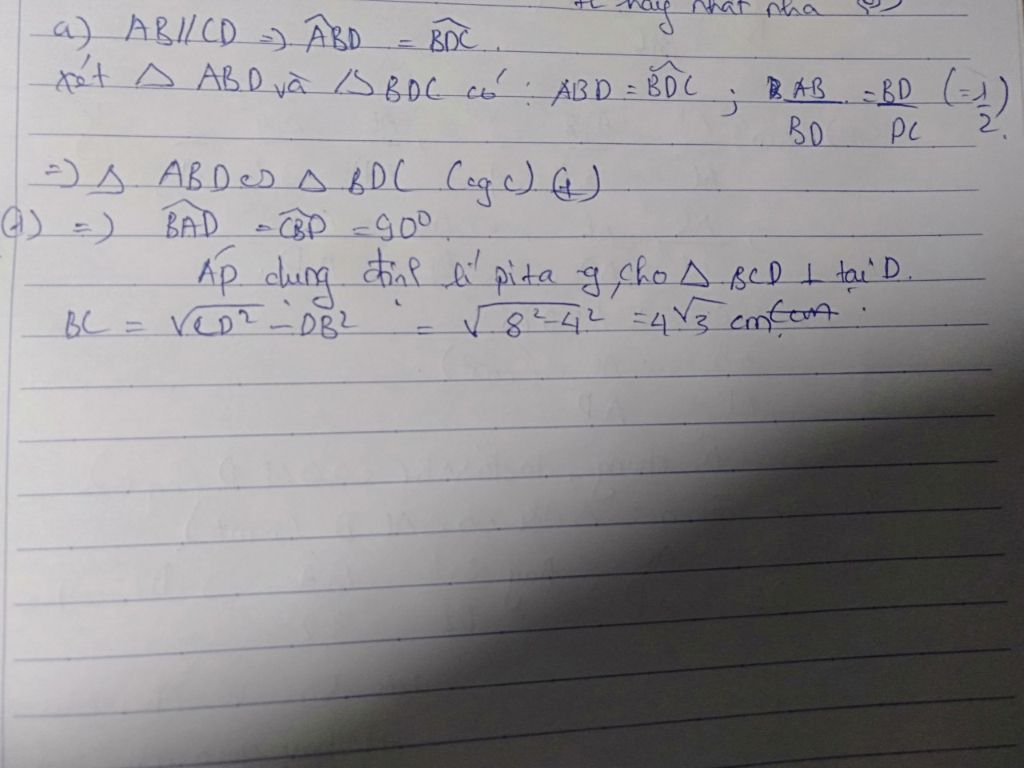 hay nhất nha
a) AB//CD => ABD = BDC.
xét Δ ABD và Δ BDC có : ABD = BDC ; AB/BD = BD/DC (=1/2).
=> Δ ABD ∽ Δ BDC (cgc) (1)
(1) => BAD = CBD = 90⁰
Áp dụng định lí pitag, cho Δ BCD ⊥ tại D.
BC = √CD² - DB² = √8²-4² = 4√3 cm